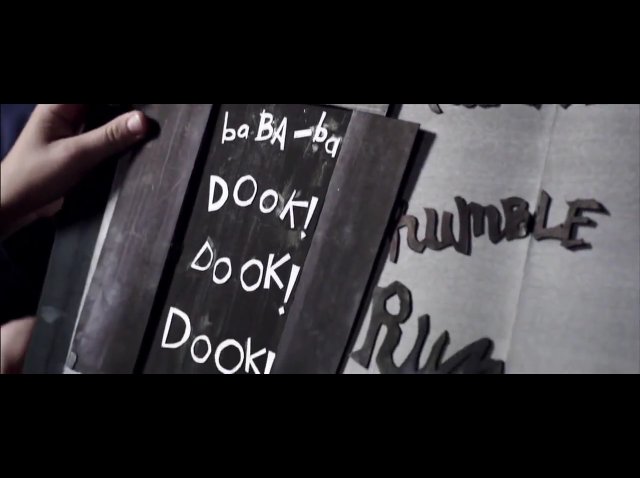 baBA-ba
DOOK!
DOOK!
DOOK!
RUMBLE